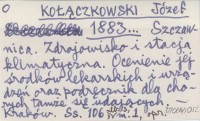 KOŁĄCZKOWSKI Józef
1883... Szczaw-
nica. Zdrojowisko i stacja
klimatyczna. Ocenienie jej
środków lekarskich i urzą-
dzeń oraz podręcznik dla cho-
rych tamże się udających. —
Kraków. Ss. 106 m. 1, opr.